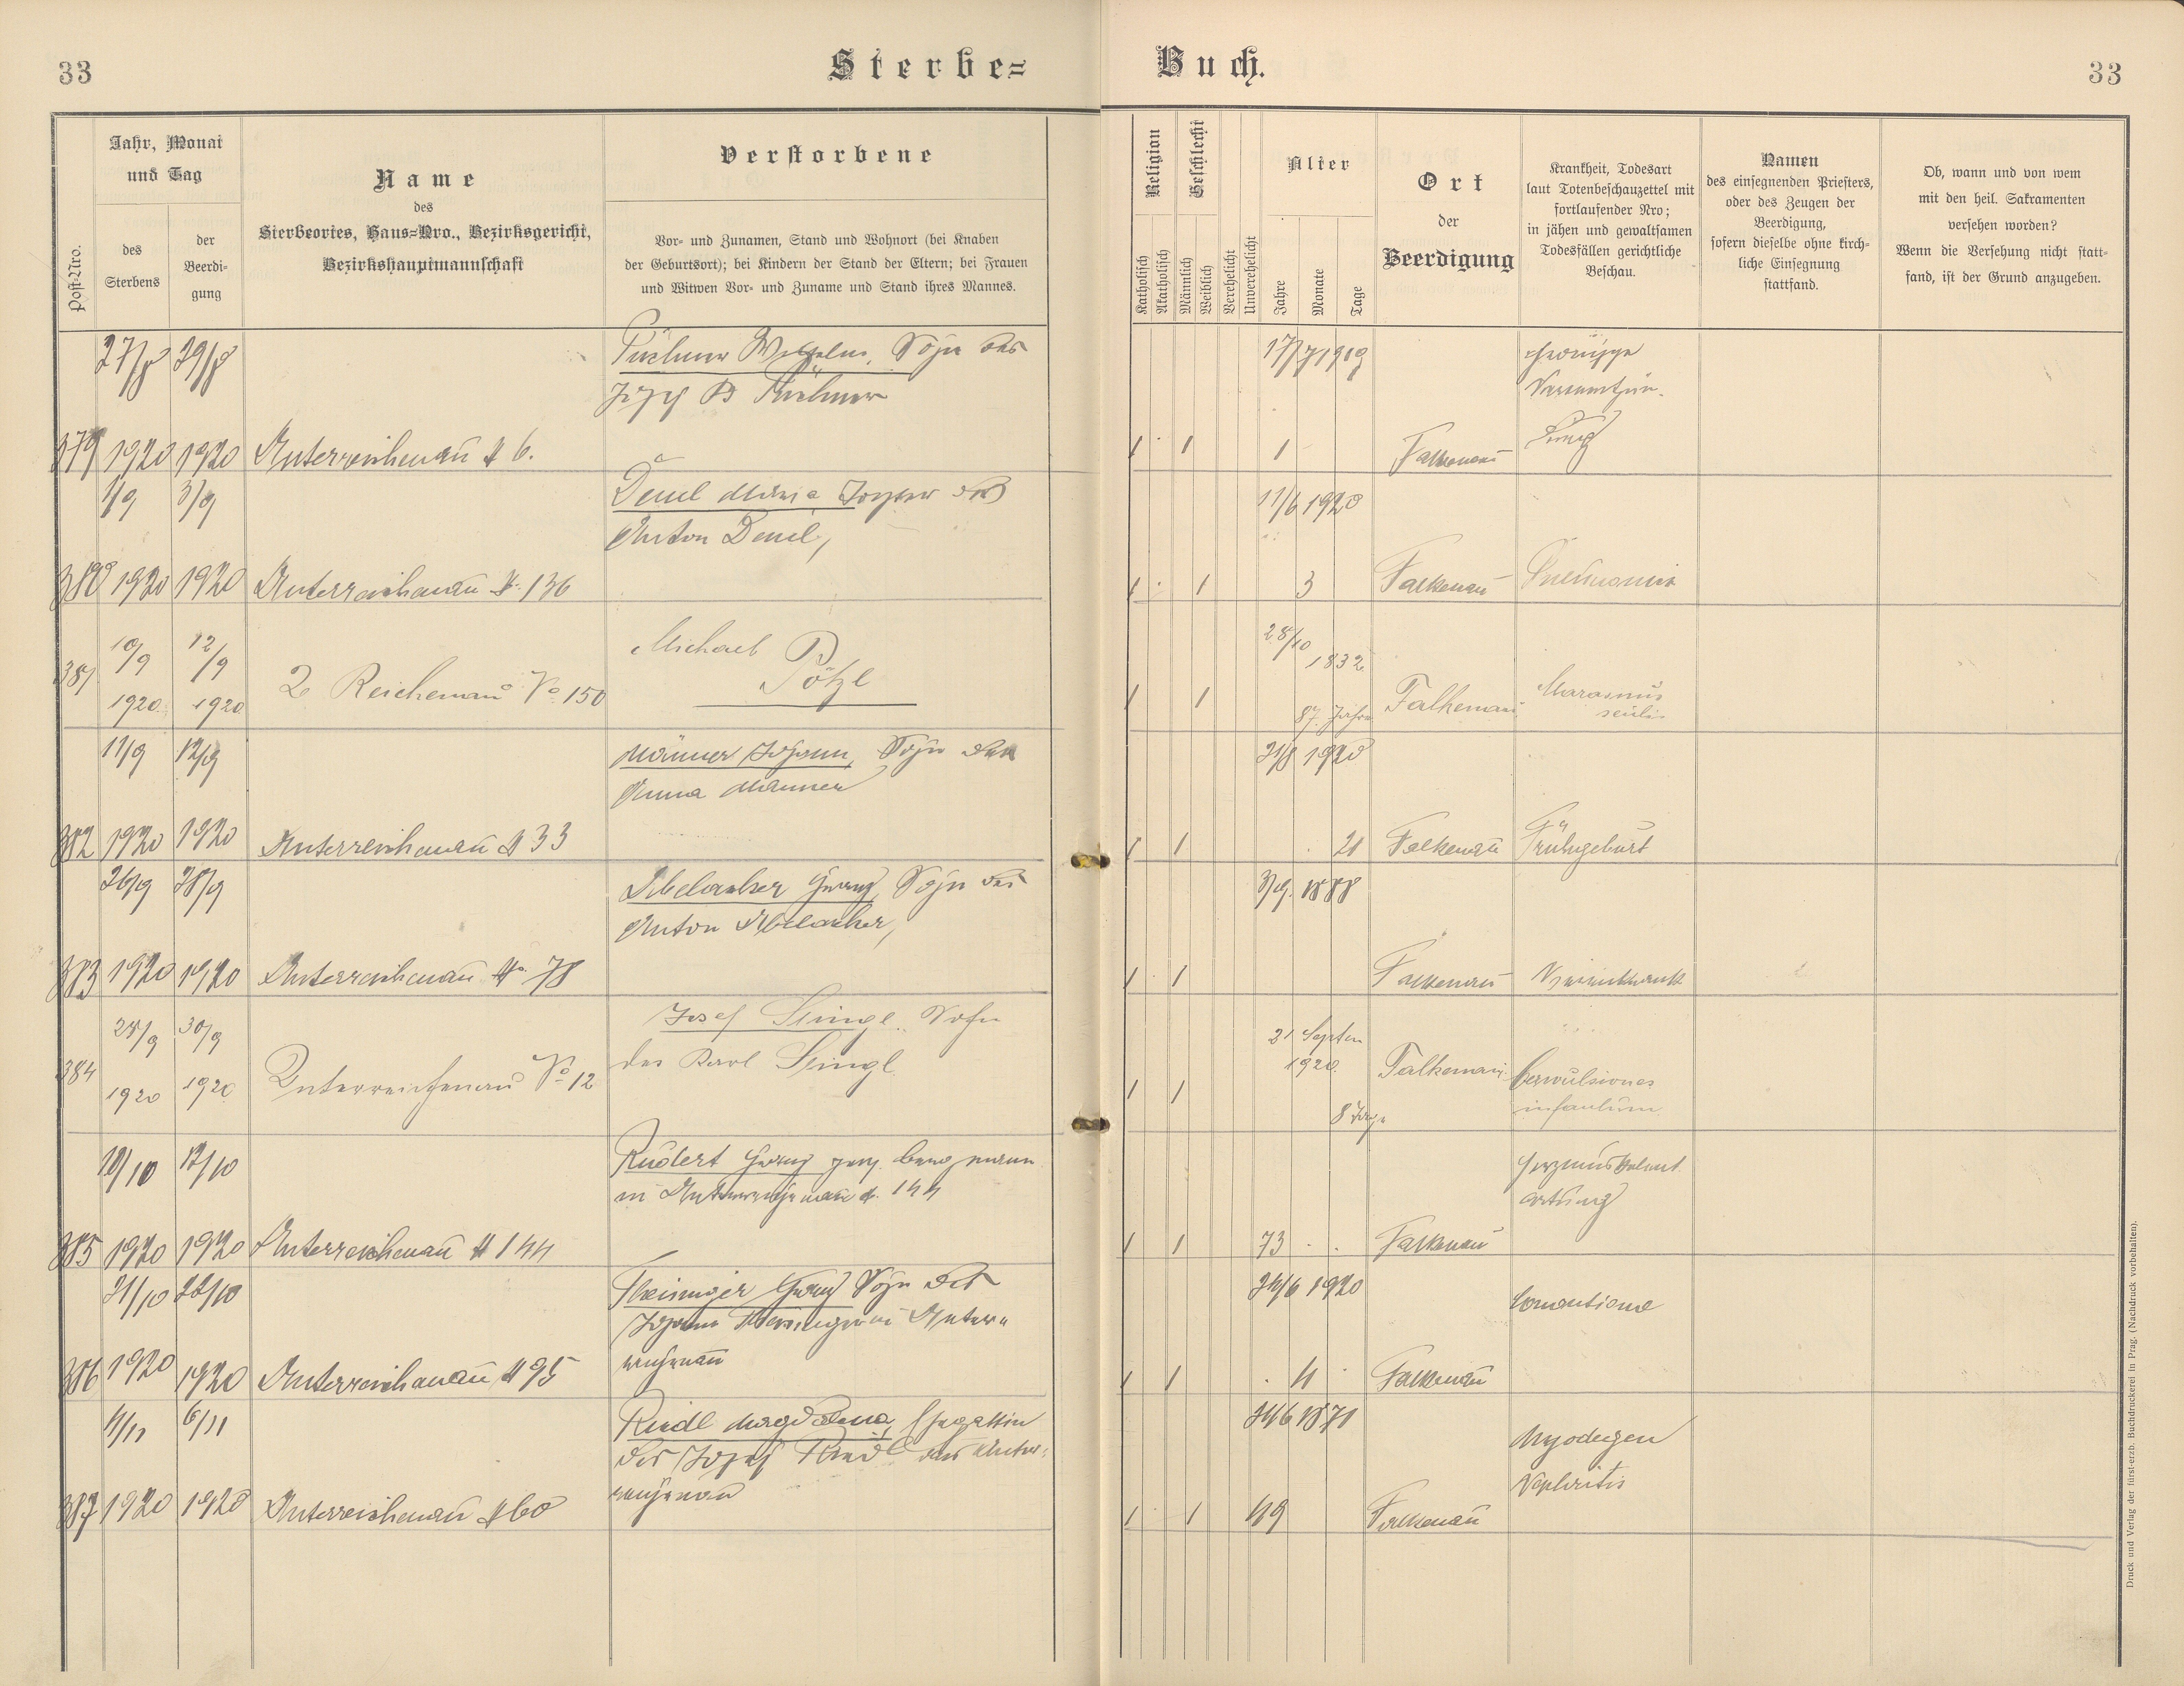 33
Sterbe=
Buch.
33
Post-Nro.
Jahr, Monat
und Tag
des
Sterbens
der
Beerdi-
gung
Name
des
Sterbeortes, Haus=Nro., Bezirksgericht,
Bezirkshauptmannschaft
Verstorbene
Vor- und Zunamen, Stand und Wohnort (bei Knaben
der Geburtsort); bei Kindern der Stand der Eltern; bei Frauen
und Witwen Vor- und Zuname und Stand ihres Mannes.
Religion
Katholisch
Akatholisch
Geschlecht
Männlich
Weiblich
Verehelicht
Unverehelicht
Alter
Jahre
Monate
Tage
Ort
der
Beerdigung
Krankheit, Todesart
laut Totenbeschauzettel mit
fortlaufender Nro;
in jähen und gewaltsamen
Todesfällen gerichtliche
Beschau.
Namen
des einsegnenden Priesters,
oder des Zeugen der
Beerdigung,
sofern dieselbe ohne kirch-
liche Einsegnung
stattfand.
Ob, wann und von wem
mit den heil. Sakramenten
versehen worden?
Wenn die Versehung nicht statt-
fand, ist der Grund anzugeben.
27/8 29/8 Wilhelm, Sohn des 17/7 1919
Josef
379 1920 1920 Unterreichenau # 6. 1 1 1 Falkenau
1/9 3/9 Deml Maria Tochter des 11/6 1920
Anton Deml,
380 1920 1920 Unterreichenau #. 136 1 1 3 Falkenau Pneumonie
10/9 12/9 Michael 28/10
1832
381 Reichenau No. 150 Pötzl
1920 1920 1 1 87 Jahre Falkenau Marasmus
senilis
11/9 12/9 Manner Johann, Sohn der 21/8 1920
Anna Manner
382 1920 1920 Unterreichenau # 33 1 1 21 Falkenau Frühgeburt
26/9 28/9 Franz, Sohn des 3/9. 1888
Anton
383 1920 1920 Unterreichenau #. 78 1 1 Falkenau
28/9 30/9 Josef Singl. Sohn 21 Septem
des Karl Singl. 1920
384 Unterreichenau No 12 Falkenau Convulsiones
1920 1920 1 1 8 Tage infantum.
10/10 12/10 Rudert Franz Bergmann
in Unterreichenau #. 144
385 1920 1920 Unterreichenau # 144 1 1 73 Falkenau
21/10 22/10 Theisinger Franz Sohn des 24/6 1920
Johann Theisinger in Unter=
reichenau
386 1920 1920 Unterreichenau # 95 1 1 4 Falkenau
4/11 6/11 Riedl Magdalena, Ehegattin 24/6 1871
des Josef Riedl aus Unter=
reichenau
Myodegen
Nephritis
387 1920 1920 Unterreichenau # 60 1 1 49 Falkenau
Druck und Verlag der fürst-erzb. Buchdruckerei in Prag. (Nachdruck vorbehalten).